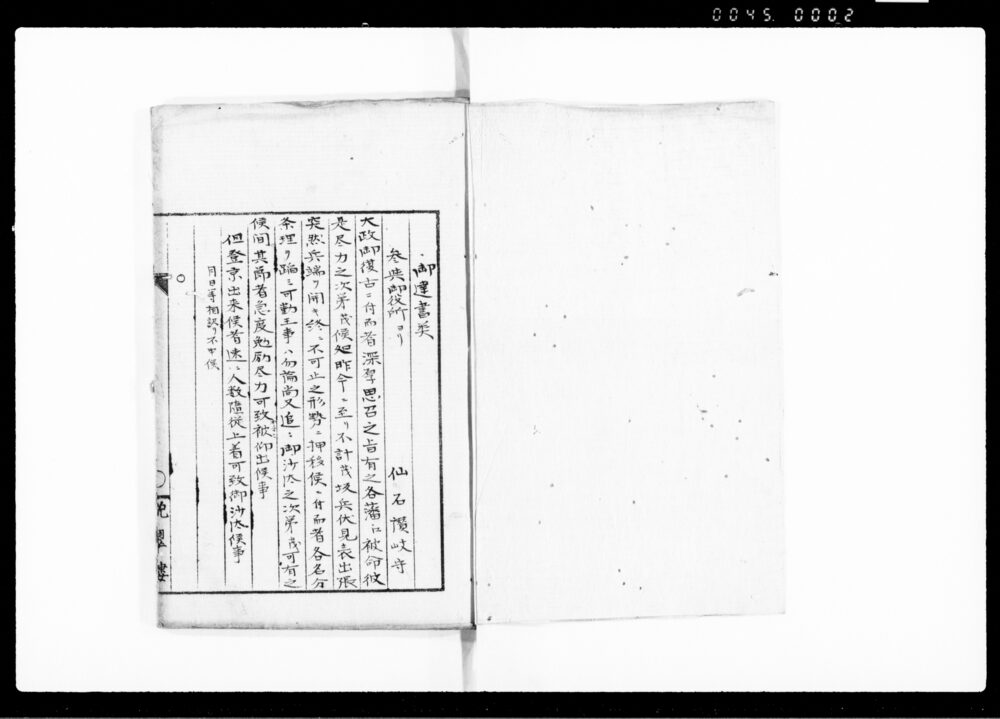 0045. 0002
御達書類
参與御役所ヨリ
仙石讃岐守
大政御復古ニ付而者深孚思召之旨有之各藩江被命彼
是尽力之次第茂候処昨今ニ至リ不計茂坂兵伏見表出張
突然兵端ヲ開キ終ニ不可止之形勢ニ押移候ニ付而者各名分
条理ヲ蹈ミ可勤王事ハ勿論尚又追々御沙汰之次第茂可有之
候間其節者急度勉励尽力可致被仰出候事
但登京出来候者速ニ人数随従上着可致御沙汰候事
月日等相認リ不申候
○
晩翠楼